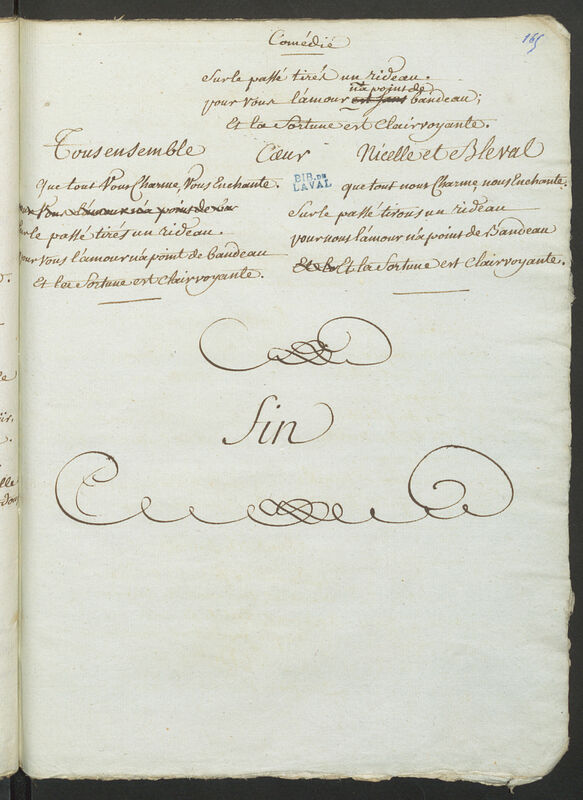 Comédié
165
Sur le passé tirés un rideau.
n'a point de
pour Vous l'amour est sans bandeau;
Et la Fortune est Clairvoyante.
Tous ensemble
Cœur
Nicelle et Bleval
BIB. DE
LAVAL
Que tout Vous Charme, Vous Enchante.
pour Vous l'amour n'a point de
Sur le passé tirés un rideau.
pour Vous l'amour n'a point de bandeau
Et la Fortune est Clairvoyante.
que tout nous Charme nous Enchante.
Sur le passé tirons un rideau
pour nous l'amour n'a point de Bandeau
Et la Et la Fortune est Clairvoyante.
fin